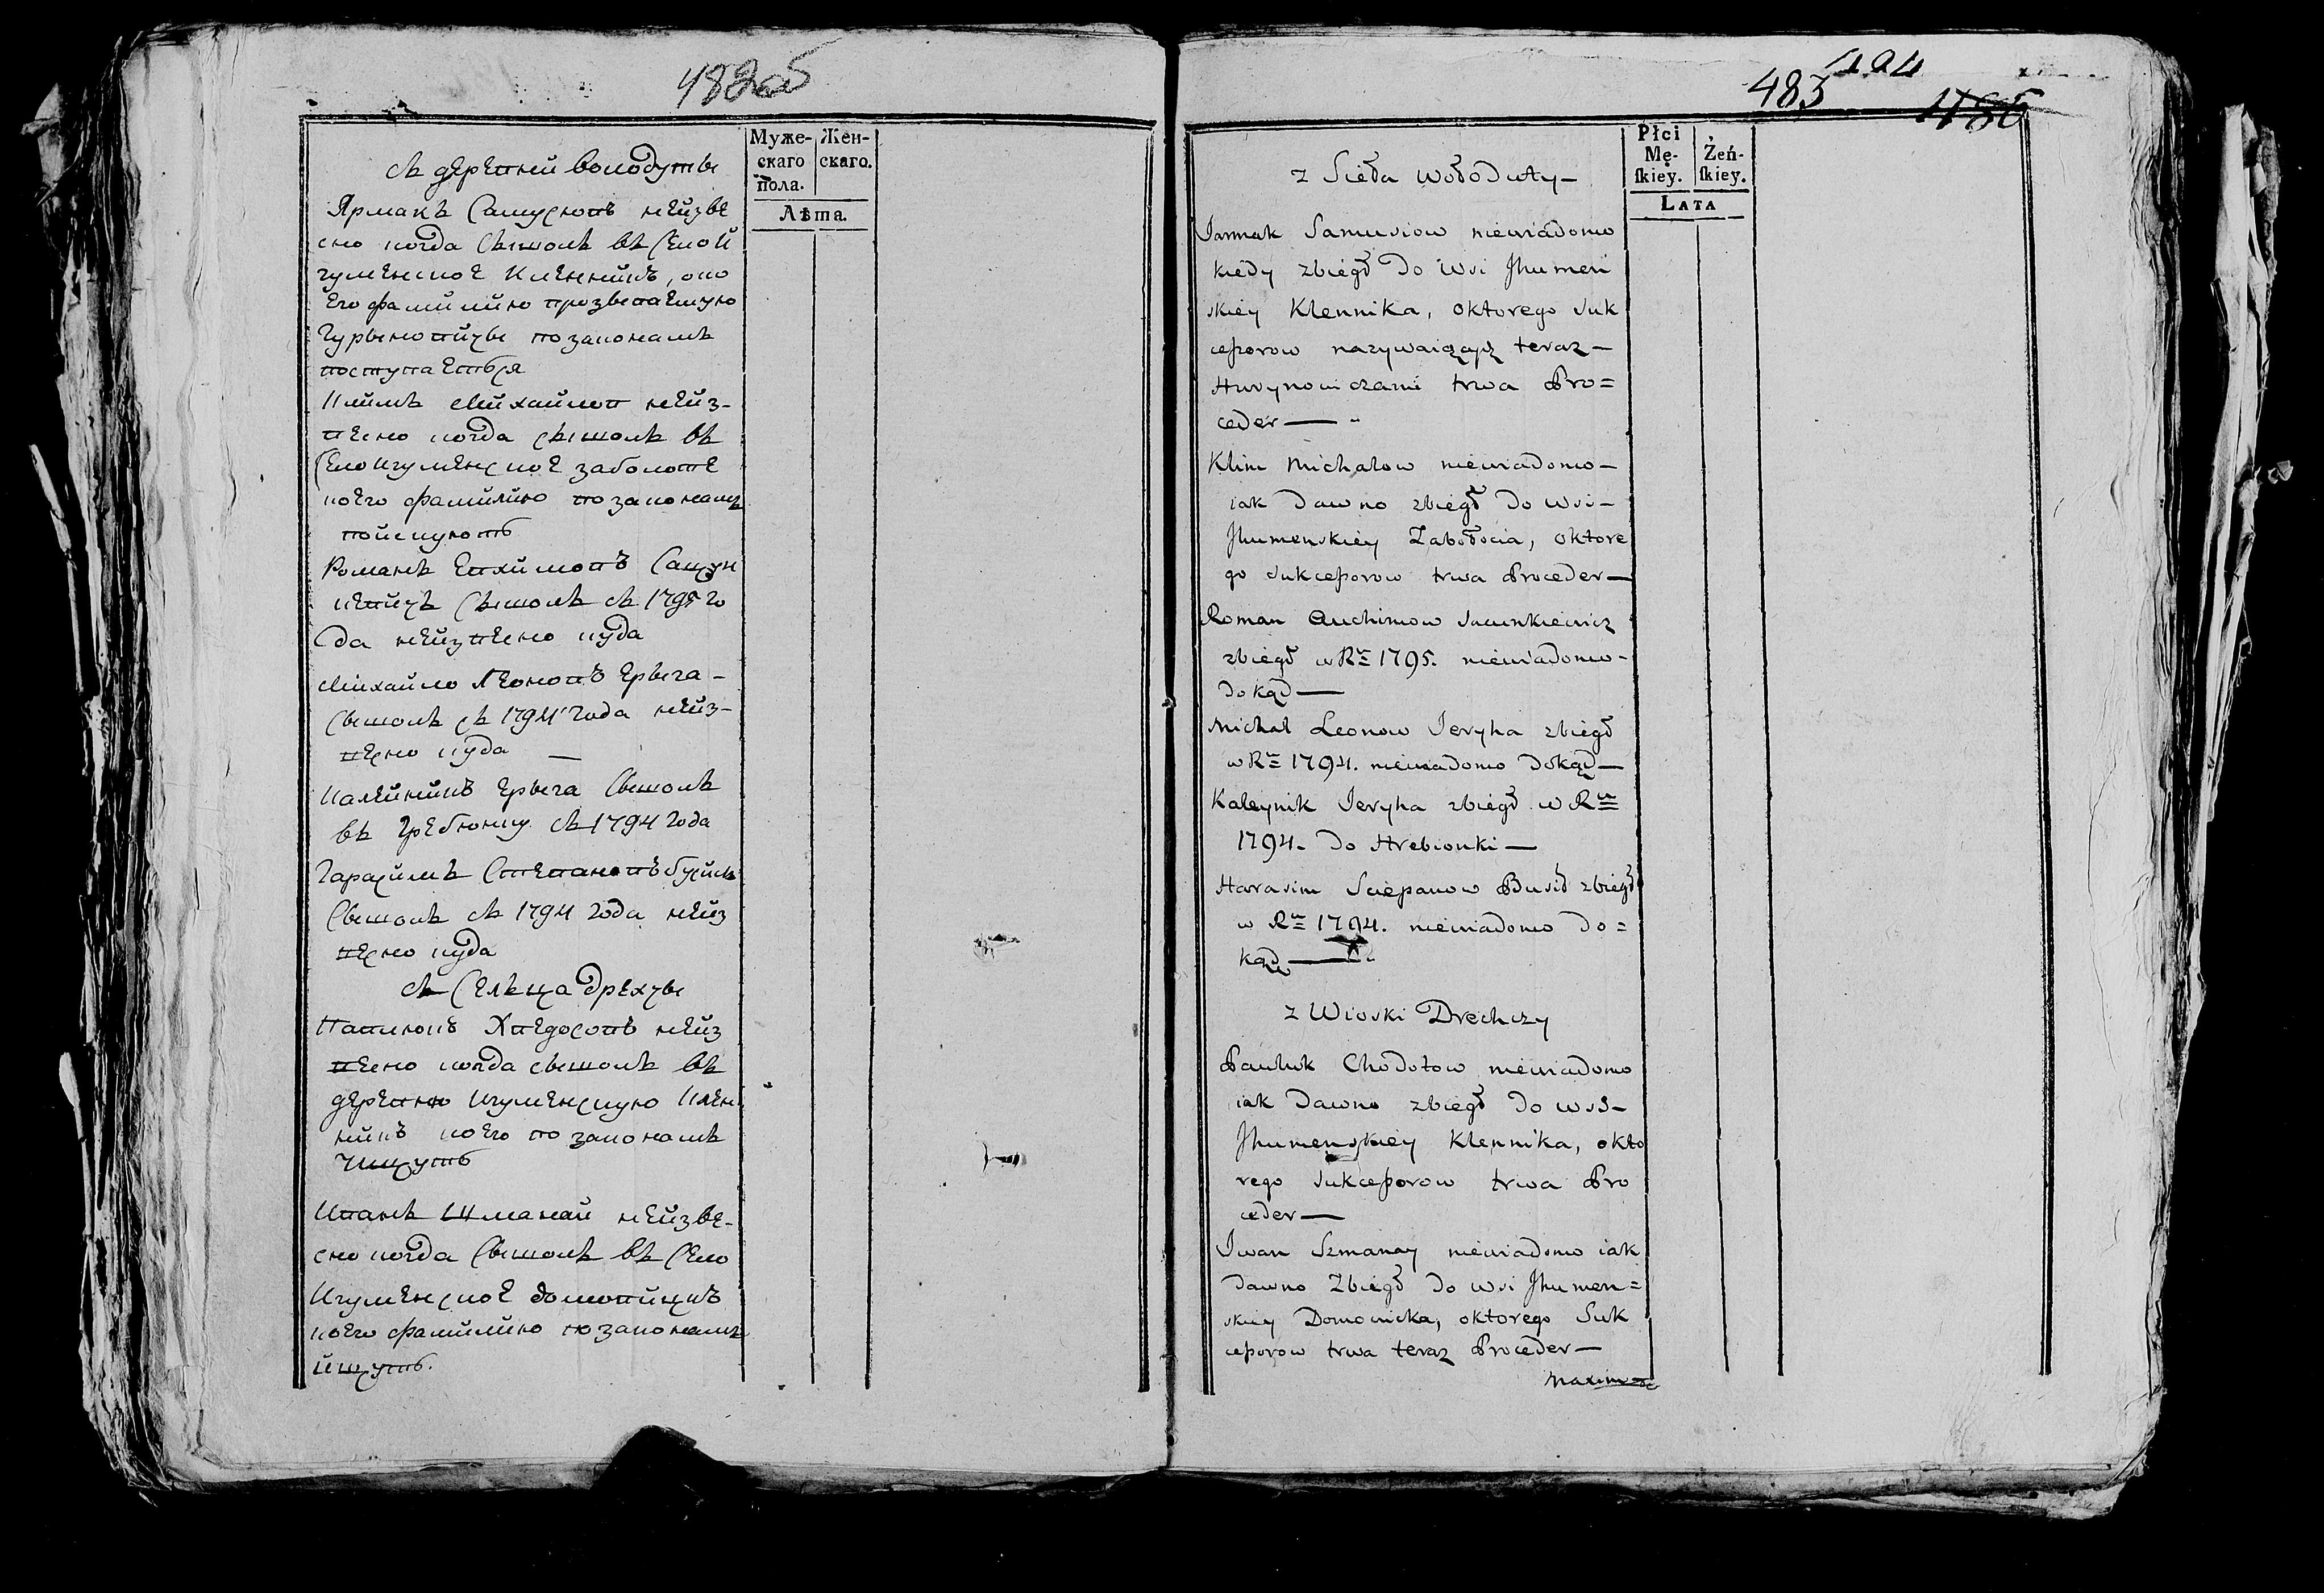 483об
Муже-
скаго
пола.
Жен-
скаго.
Лѣта.
съ дерѣвней володуты
Ярмакъ Самусювъ неизве
сно когда сышолъ въ село И
гуменское Кленникъ, око
его фамилию прозываемую
Гурыновичы по законамъ
поступаеться
Климъ Михайлов неиз-
весно когда сышолъ въ
село игуменское заболоте
коего фамилию по законамъ
поискують
Романъ Евхимовъ Саун
кевичъ сышолъ съ 1795 го
да неизвесно куда
Михайло Леоновъ Ерыга -
сышолъ съ 1794 года неиз-
весно куда —
Калейникъ Ерыга сышолъ
въ Гребюнку съ 1794 года
Гарасимъ Степановъ бусилъ
сышолъ съ 1794 года неиз
весно куда
съ сельца дрехчы
Павлюкъ неиз
весно когда сышолъ въ
деревню игуменскую Клен
никъ коего по законамъ
ищуть
Иванъ Шманай неизве-
сно когда сышолъ въ село
Игуменское домовицкъ
коего фамилию по законамъ
ищуть.
483
486
Płci
Mę-
ſkiey.
Żeń-
ſkiey.
LATA
z Sieła Wołoduty —
Jarmak Samusiow niewiadomo
kiedy zbiegł do Wsi Jhumen
skiey Klennika, oktorego suk
cessorow nazywaiących teraz —
Hurynowiczami trwa Pro=
ceder —
Klim Michałow niewiadomo —
iak dawno zbiegł do wsi —
Jhumenskiey Zabołocia, oktore
go sukcessorow trwa Proceder —
Roman Auchimow Saunkiewicz
zbiegł w Ru 1795. niewiadomo -
dokąd —
Michał Leonow Jeryha zbiegł
w Ru 1794. niewiadomo dokąd —
Kaleynik Jeryha zbiegł w Ru
1794. do Hrebionki —
Harasim Sciepanow Busił zbiegł
w Ru 1794. niewiadomo do=
kąd —
z Wioski Drechczy
Pauluk Chodotow niewiadomo
iak dawno zbiegł do wsi —
Jhumenskiey Klennika, okto
rego sukcessorow trwa Pro
ceder —
Jwan Szmanay niewiadomo iak
dawno Zbiegł do wsi Jhumen=
skiey Domowicka, oktorego Suk
cessorow trwa teraz Proceder —
Maxim